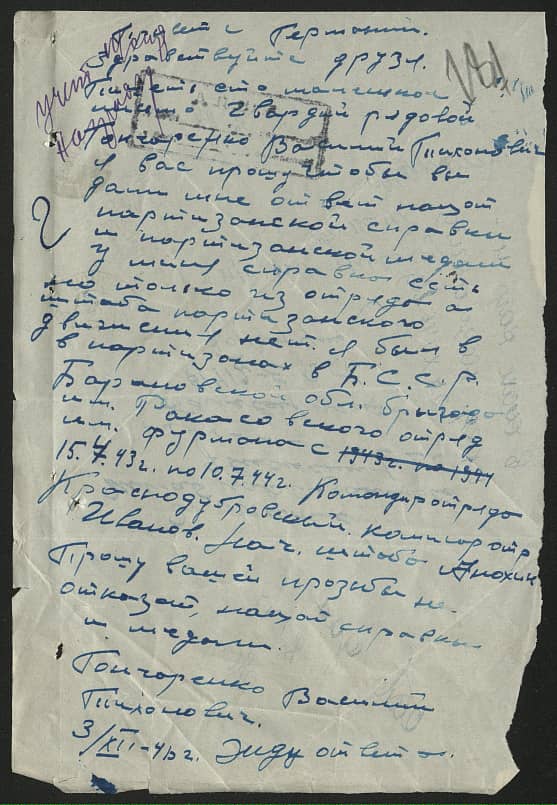 Привет с Германии.
Здравствуйте друзя.
Пишет
гвардии рядовой
Гончаренко Василий Тихонович
Я вас прошу чтобы вы
дали мне ответ нащот
партизанской справки
и партизанской медали
у меня справка есть
но только из отряда а
штаба партизанского
движения нет. я был в
в партизанах в Б.С.С.Р.
Барановской обл. брыгада
им. Ракасовского отряд
им. Фурмана с 1943г. по 1944
15.7.43г. по 10.7.44г. Командир отряда
Краснодубровский. комисар отр
Иванов. Нач. штаба Анохин
Прошу вашей прозьбы не
отказат, нащот справки
и медали.
Гончаренко Василий
Тихонович.
3/XII-45г. Жду ответа.